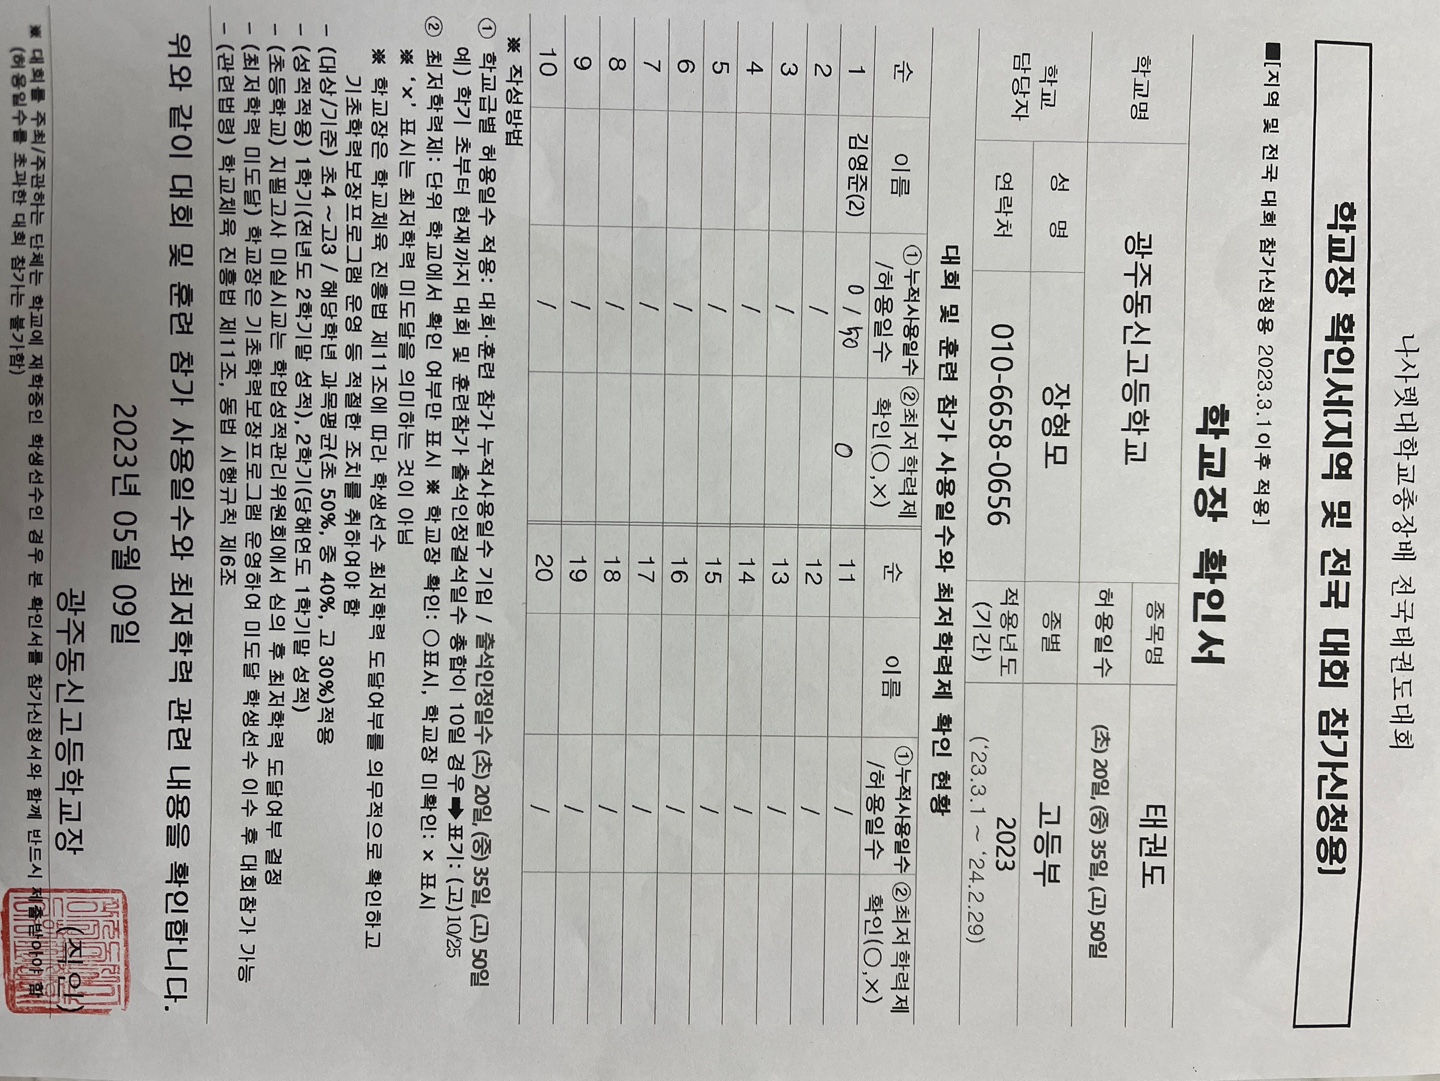 나사렛대학교총장배 전국태권도대회
학교장 확인서[지역 및 전국 대회 참가신청용]
■[지역 및 전국 대회 참가신청용 2023.3.1이후 적용]
학교장 확인서
학교명 광주동신고등학교 종목명 태권도
허용일수 (초) 20일, (중) 35일, (고) 50일
학교 담당자 성 명 장형모 종별 고등부
연락처 010-6658-0656 적용년도 (기간) 2023 ('23.3.1 ~ '24.2.29)
대회 및 훈련 참가 사용일수와 최저학력제 확인 현황
순 이름 ①누적사용일수 /허용일수 ②최저학력제 확인(○,×) 순 이름 ①누적사용일수 /허용일수 ②최저학력제 확인(○,×)
1 김영준(2) 0 / 50 O 11 /
2 / 12 /
3 / 13 /
4 / 14 /
5 / 15 /
6 / 16 /
7 / 17 /
8 / 18 /
9 / 19 /
10 / 20 /
※ 작성방법
① 학교급별 허용일수 적용: 대회·훈련 참가 누적사용일수 기입 / 출석인정일수 (초) 20일, (중) 35일, (고) 50일
예) 학기 초부터 현재까지 대회 및 훈련참가 출석인정결석일수 총합이 10일 경우 ➡ 표기: (고) 10/25
② 최저학력제: 단위 학교에서 확인 여부만 표시 ※ 학교장 확인: ○표시, 학교장 미확인: × 표시
※ '×' 표시는 최저학력 미도달을 의미하는 것이 아님
※ 학교장은 학교체육 진흥법 제11조에 따라 학생선수 최저학력 도달여부를 의무적으로 확인하고
기초학력보장프로그램 운영 등 적절한 조치를 취하여야 함
- (대상/기준) 초4 ~ 고3 / 해당학년 과목평균(초 50%, 중 40%, 고 30%)적용
- (성적적용) 1학기(전년도 2학기말 성적), 2학기(당해연도 1학기말 성적)
- (초등학교) 지필고사 미실시교는 학업성적관리위원회에서 심의 후 최저학력 도달여부 결정
- (최저학력 미도달) 학교장은 기초학력보장프로그램 운영하여 미도달 학생선수 이수 후 대회참가 가능
- (관련법령) 학교체육 진흥법 제11조, 동법 시행규칙 제6조
위와 같이 대회 및 훈련 참가 사용일수와 최저학력 관련 내용을 확인합니다.
2023년 05월 09일
광주동신고등학교장 (직인)
※ 대회를 주최/주관하는 단체는 학교에 재학중인 학생선수인 경우 본 확인서를 참가신청서와 함께 반드시 제출받아야 함
(허용일수를 초과한 대회 참가는 불가함)